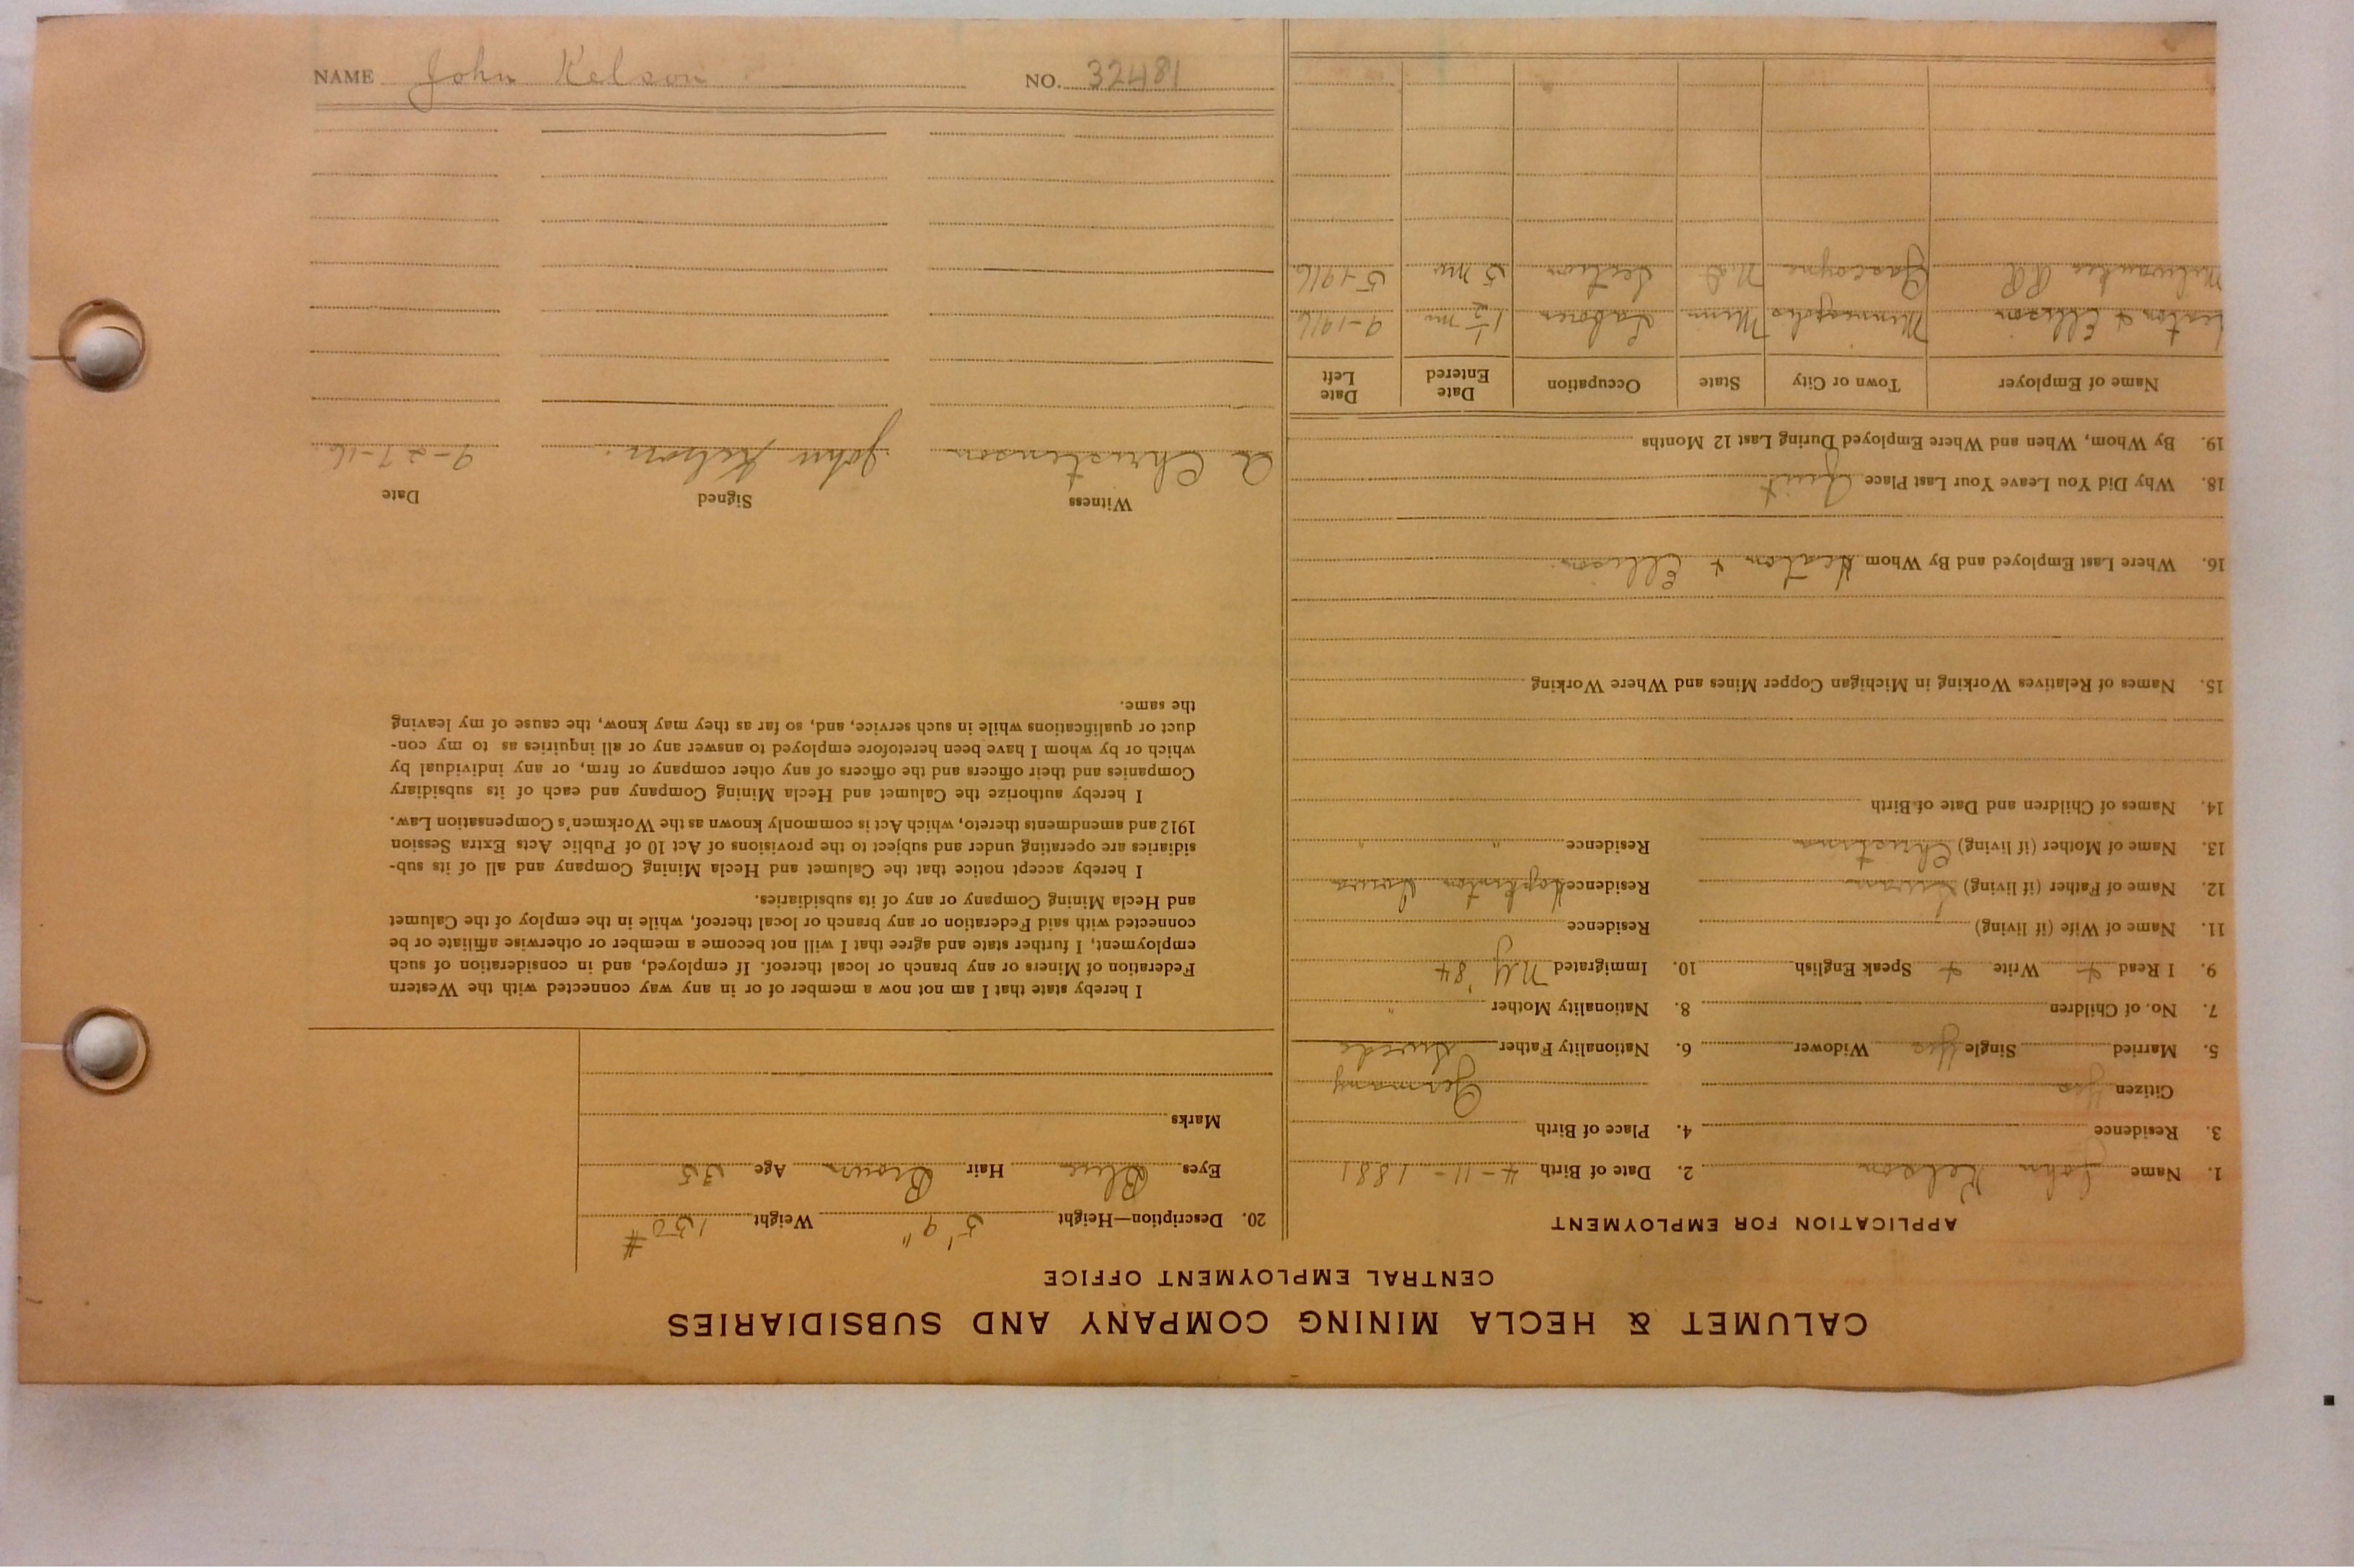 NAME John Kelson NO. 32481
CALUMET & HECLA MINING COMPANY AND SUBSIDIARIES
CENTRAL EMPLOYMENT OFFICE
APPLICATION FOR EMPLOYMENT
1. Name John Kelson 2. Date of Birth 4-11-1881
3. Residence 4. Place of Birth
Citizen Yes Germany
5. Married Single Yes Widower 6. Nationality Father Swede
7. No. of Children 8. Nationality Mother "
9. I Read + Write + Speak English 10. Immigrated NY '84
11. Name of Wife (if living) Residence
12. Name of Father (if living) Residence Hopkinton Iowa
13. Name of Mother (if living) Christina Residence " "
14. Names of Children and Date of Birth
15. Names of Relatives Working in Michigan Copper Mines and Where Working
16. Where Last Employed and By Whom Heaton & Ellison
18. Why Did You Leave Your Last Place Quit
19. By Whom, When and Where Employed During Last 12 Months
Name of Employer Town or City State Occupation Date Entered Date Left
& Ellison Minneapolis Minn Laborer 1 1/2 mo 9-1916
Milwaukee RR Gascoyne N.D. Section 5 mo 5-1916
20. Description—Height 5' 9" Weight 150 #
Eyes Blue Hair Brown Age 35
Marks
I hereby state that I am not now a member of or in any way connected with the Western
Federation of Miners or any branch or local thereof. If employed, and in consideration of such
employment, I further state and agree that I will not become a member or otherwise affiliate or be
connected with said Federation or any branch or local thereof, while in the employ of the Calumet
and Hecla Mining Company or any of its subsidiaries.
I hereby accept notice that the Calumet and Hecla Mining Company and all of its sub-
sidiaries are operating under and subject to the provisions of Act 10 of Public Acts Extra Session
1912 and amendments thereto, which Act is commonly known as the Workmen's Compensation Law.
I hereby authorize the Calumet and Hecla Mining Company and each of its subsidiary
Companies and their officers and the officers of any other company or firm, or any individual by
which or by whom I have been heretofore employed to answer any or all inquiries as to my con-
duct or qualifications while in such service, and, so far as they may know, the cause of my leaving
the same.
Witness Signed Date
A Christenson John Kelson. 9-27-16